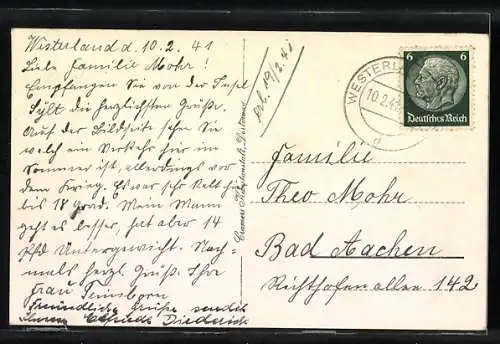 Westerland d. 10.2.41
Liebe Familie Mohr!
Empfangen Sie von der Insel
Sylt die herzlichsten Grüße.
Auf der Bildseite sehen Sie
welch ein Verkehr hier im
Sommer ist, allerdings vor
dem Krieg. Es war sehr kalt hier
bis 18 Grad. Mein Mann
geht es besser, hat aber 14
Pfd Untergewicht. Noch-
mals herzl. Grüße. Ihre
Frau
Freundliche Grüße sendet
Elfriede Diederich
19/2.41
Cramers Kunstanstalt, Dortmund
WESTERL
10.2.41
6 6
Deutsches Reich
Familie
Theo Mohr
Bad Aachen
Richthofenallee 142